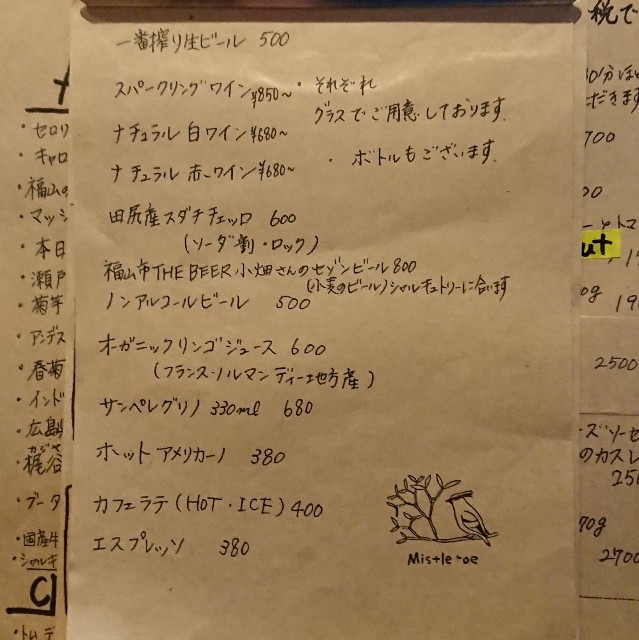 一番搾り生ビール 500
スパークリングワイン ¥850~ ・それぞれ
グラスでご用意しております。
ナチュラル 白ワイン ¥680~
ナチュラル 赤ワイン ¥680~ ・ボトルもございます。
田尻産スダチチェッロ 600
(ソーダ割・ロック)
福山市 THE BEER 小畑さんのセゾンビール 800
(小麦のビール)シャルキュトリーに合います
ノンアルコールビール 500
オーガニックリンゴジュース 600
(フランス・ノルマンディー地方産)
サンペレグリノ 330ml 680
ホット アメリカーノ 380
カフェラテ (HOT・ICE) 400
エスプレッソ 380
Mistletoe
・セロリ
・キャロ
・福山の
・マッシ
・本日
・瀬戸
・菊芋
・アンデス
・春菊
・インド
・広島
・梶谷
・ブータ
・国産牛
・シャルキ
C
税で
30分ほど
ただきます
700
00
ut
0g 19
2500
ーズソーセ
のカスレ
250
70g
2700